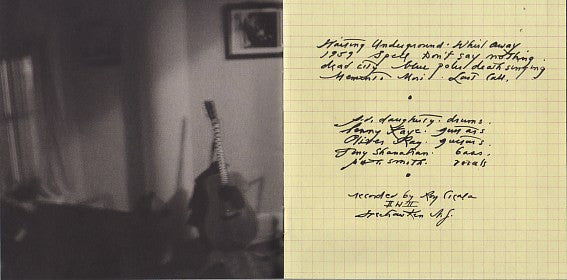 Waiting Underground. Whirl away
1959 Spell Don't say nothing.
dead city blue poles death singing
Memento Mori. Last Call.
j.d. daugherty. drums.
Lenny Kaye. guitars
Oliver Ray. guitars.
Tony Shanahan. bass.
patti smith. vocals
recorded by Roy Cicala
IIWII
Weehawken N.J.